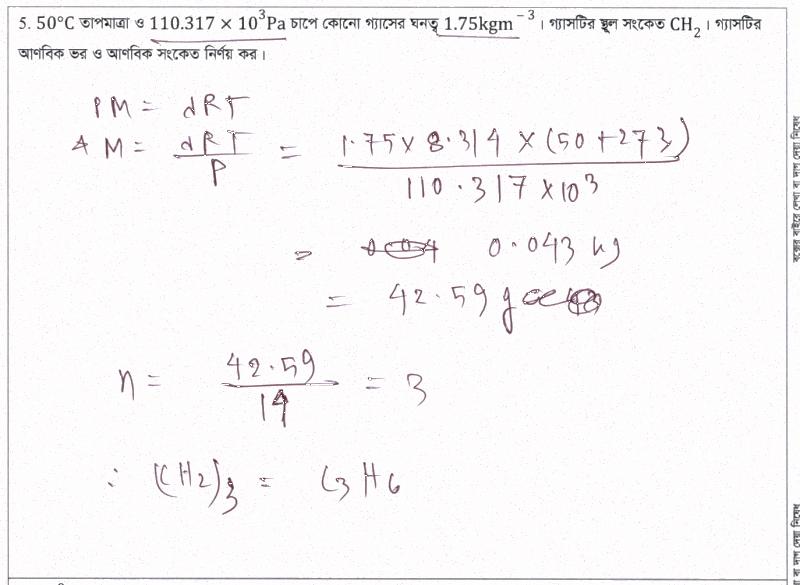 5. 50°C তাপমাত্রা ও 110.317 × 10³Pa চাপে কোনো গ্যাসের ঘনত্ব 1.75kgm⁻³। গ্যাসটির স্থুল সংকেত CH₂। গ্যাসটির
আণবিক ভর ও আণবিক সংকেত নির্ণয় কর।
PM = dRT
M = dRT/P = 1.75 × 8.314 × (50 + 273) / 110.317 × 10³
= 0.043 kg
= 42.59 g
n = 42.59/14 = 3
∴ (CH₂)₃ = C₃H₆